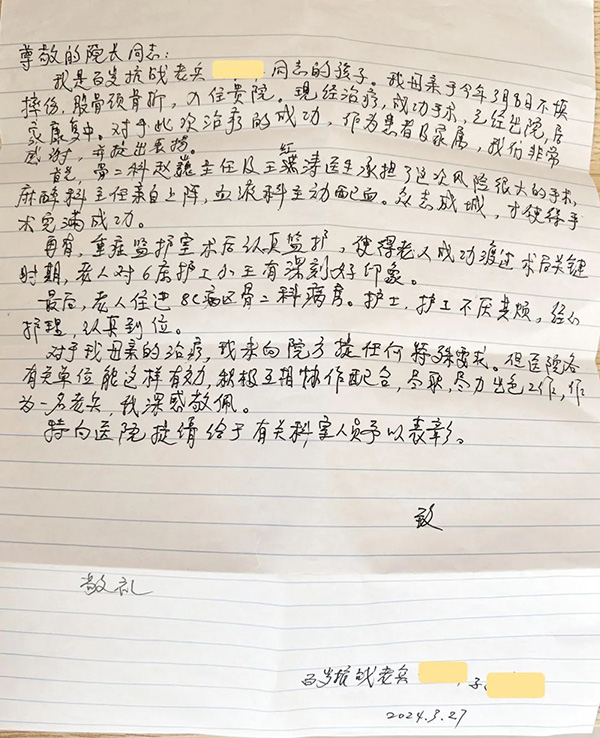 尊敬的院长同志：
我是百岁抗战老兵 同志的孩子。我母亲于今年3月8日不慎
摔伤，股骨颈骨折，入住贵院。现经治疗，成功手术，已经出院，居
家康复中。对于此次治疗的成功，作为患者及家属，我们非常
感谢，并提出表扬。
首先，骨二科赵巍主任及王红涛医生承担了这次风险很大的手术，
麻醉科主任亲自上阵，血液科主动配血。众志成城，才使得手
术完满成功。
再有，重症监护室术后认真监护，使得老人成功渡过术后关键
时期，老人对6床护工小王有深刻好印象。
最后，老人住进8C病区骨二科病房。护士，护工不厌其烦，经心
护理，认真到位。
对于我母亲的治疗，我未向院方提任何特殊要求。但医院各
有关单位能这样有效，积极互相协作配合，尽职，尽力出色工作，作
为一名老兵，我深感敬佩。
特向医院提请给于有关科室人员予以表彰。
致
敬礼
百岁抗战老兵 ，子
2024.3.27